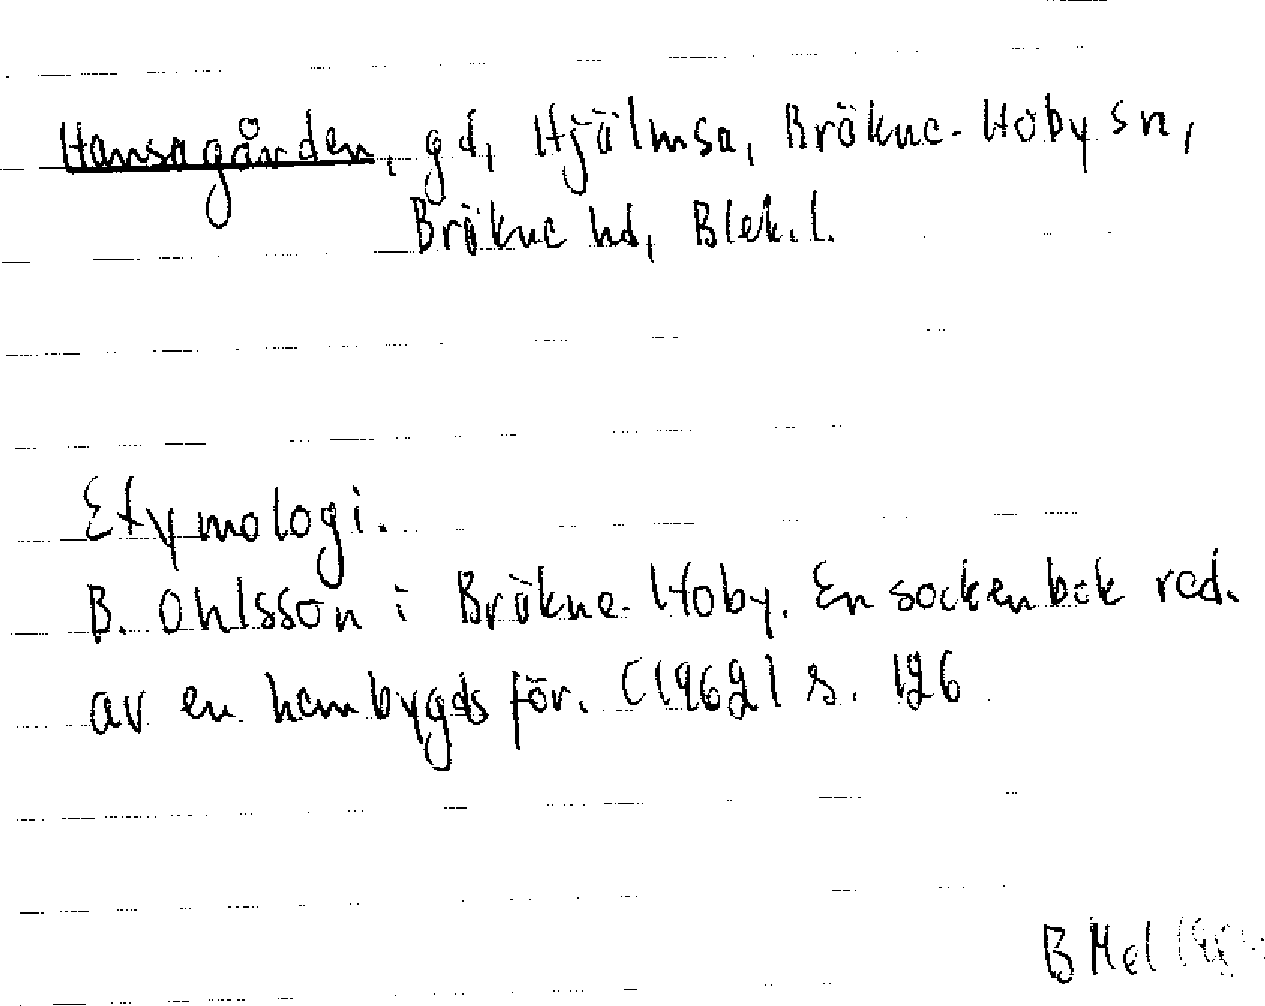 Hansagården, gd, Hjälmsa, Bräkne-Hoby sn,
Bräkne hd, Blek. l.
Etymologi.
B. Ohlsson i Bräkne-Hoby. En sockenbok red.
av en hembygdsför. (1962) s. 126
B Mel